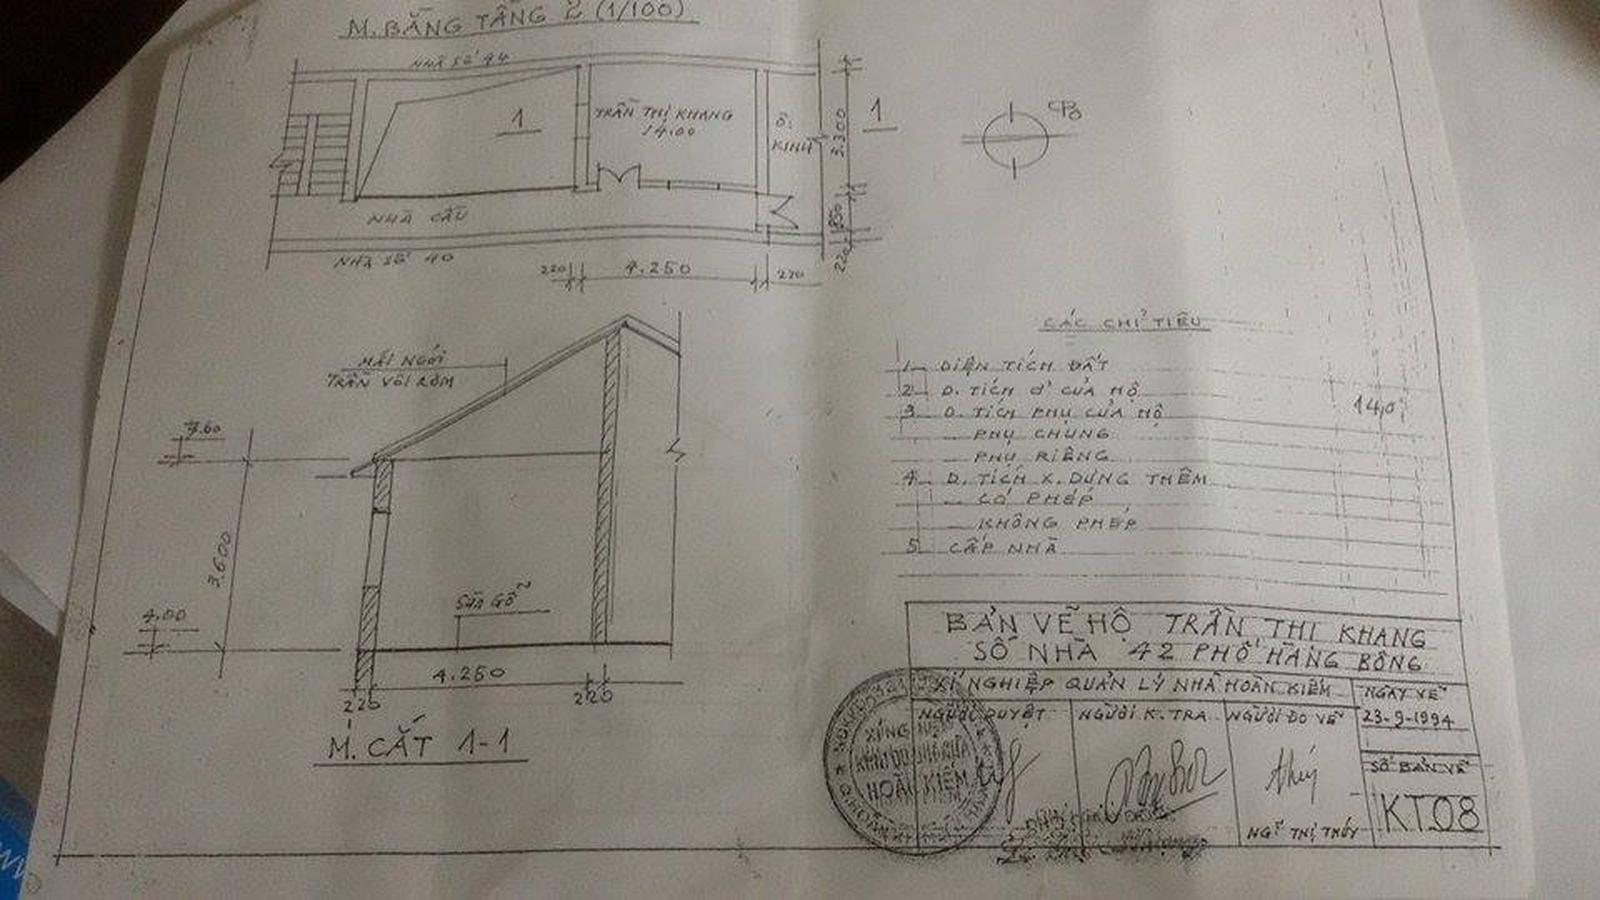 M. BẰNG TẦNG 2 (1/100)
NHÀ SỐ 44
1
TRẦN THỊ KHANG
14.00
KINH
3.300
1
NHÀ CẦU
NHÀ SỐ 40
220
4.250
220
220
MÁI NGÓI
TRẦN VÔI RƠM
3.60
3.600
SÀN GỖ
4.00
4.250
220
220
M. CẮT 1-1
CÁC CHỈ TIÊU
1- DIỆN TÍCH ĐẤT
2- D. TÍCH Ở CỦA HỘ
14,0
3- D. TÍCH PHỤ CỦA HỘ
- PHỤ CHUNG
- PHỤ RIÊNG
4- D. TÍCH X. DỰNG THÊM
- CÓ PHÉP
- KHÔNG PHÉP
5- CẤP NHÀ
BẢN VẼ HỘ TRẦN THỊ KHANG
SỐ NHÀ 42 PHỐ HÀNG BÔNG
XÍ NGHIỆP QUẢN LÝ NHÀ HOÀN KIẾM
NGÀY VẼ
23-9-1994
NGƯỜI DUYỆT
NGƯỜI K. TRA
NGƯỜI ĐO VẼ
SỐ BẢN VẼ
KT08
XÍ NGHIỆP
HOÀN KIẾM
NG~ THỊ THÚY